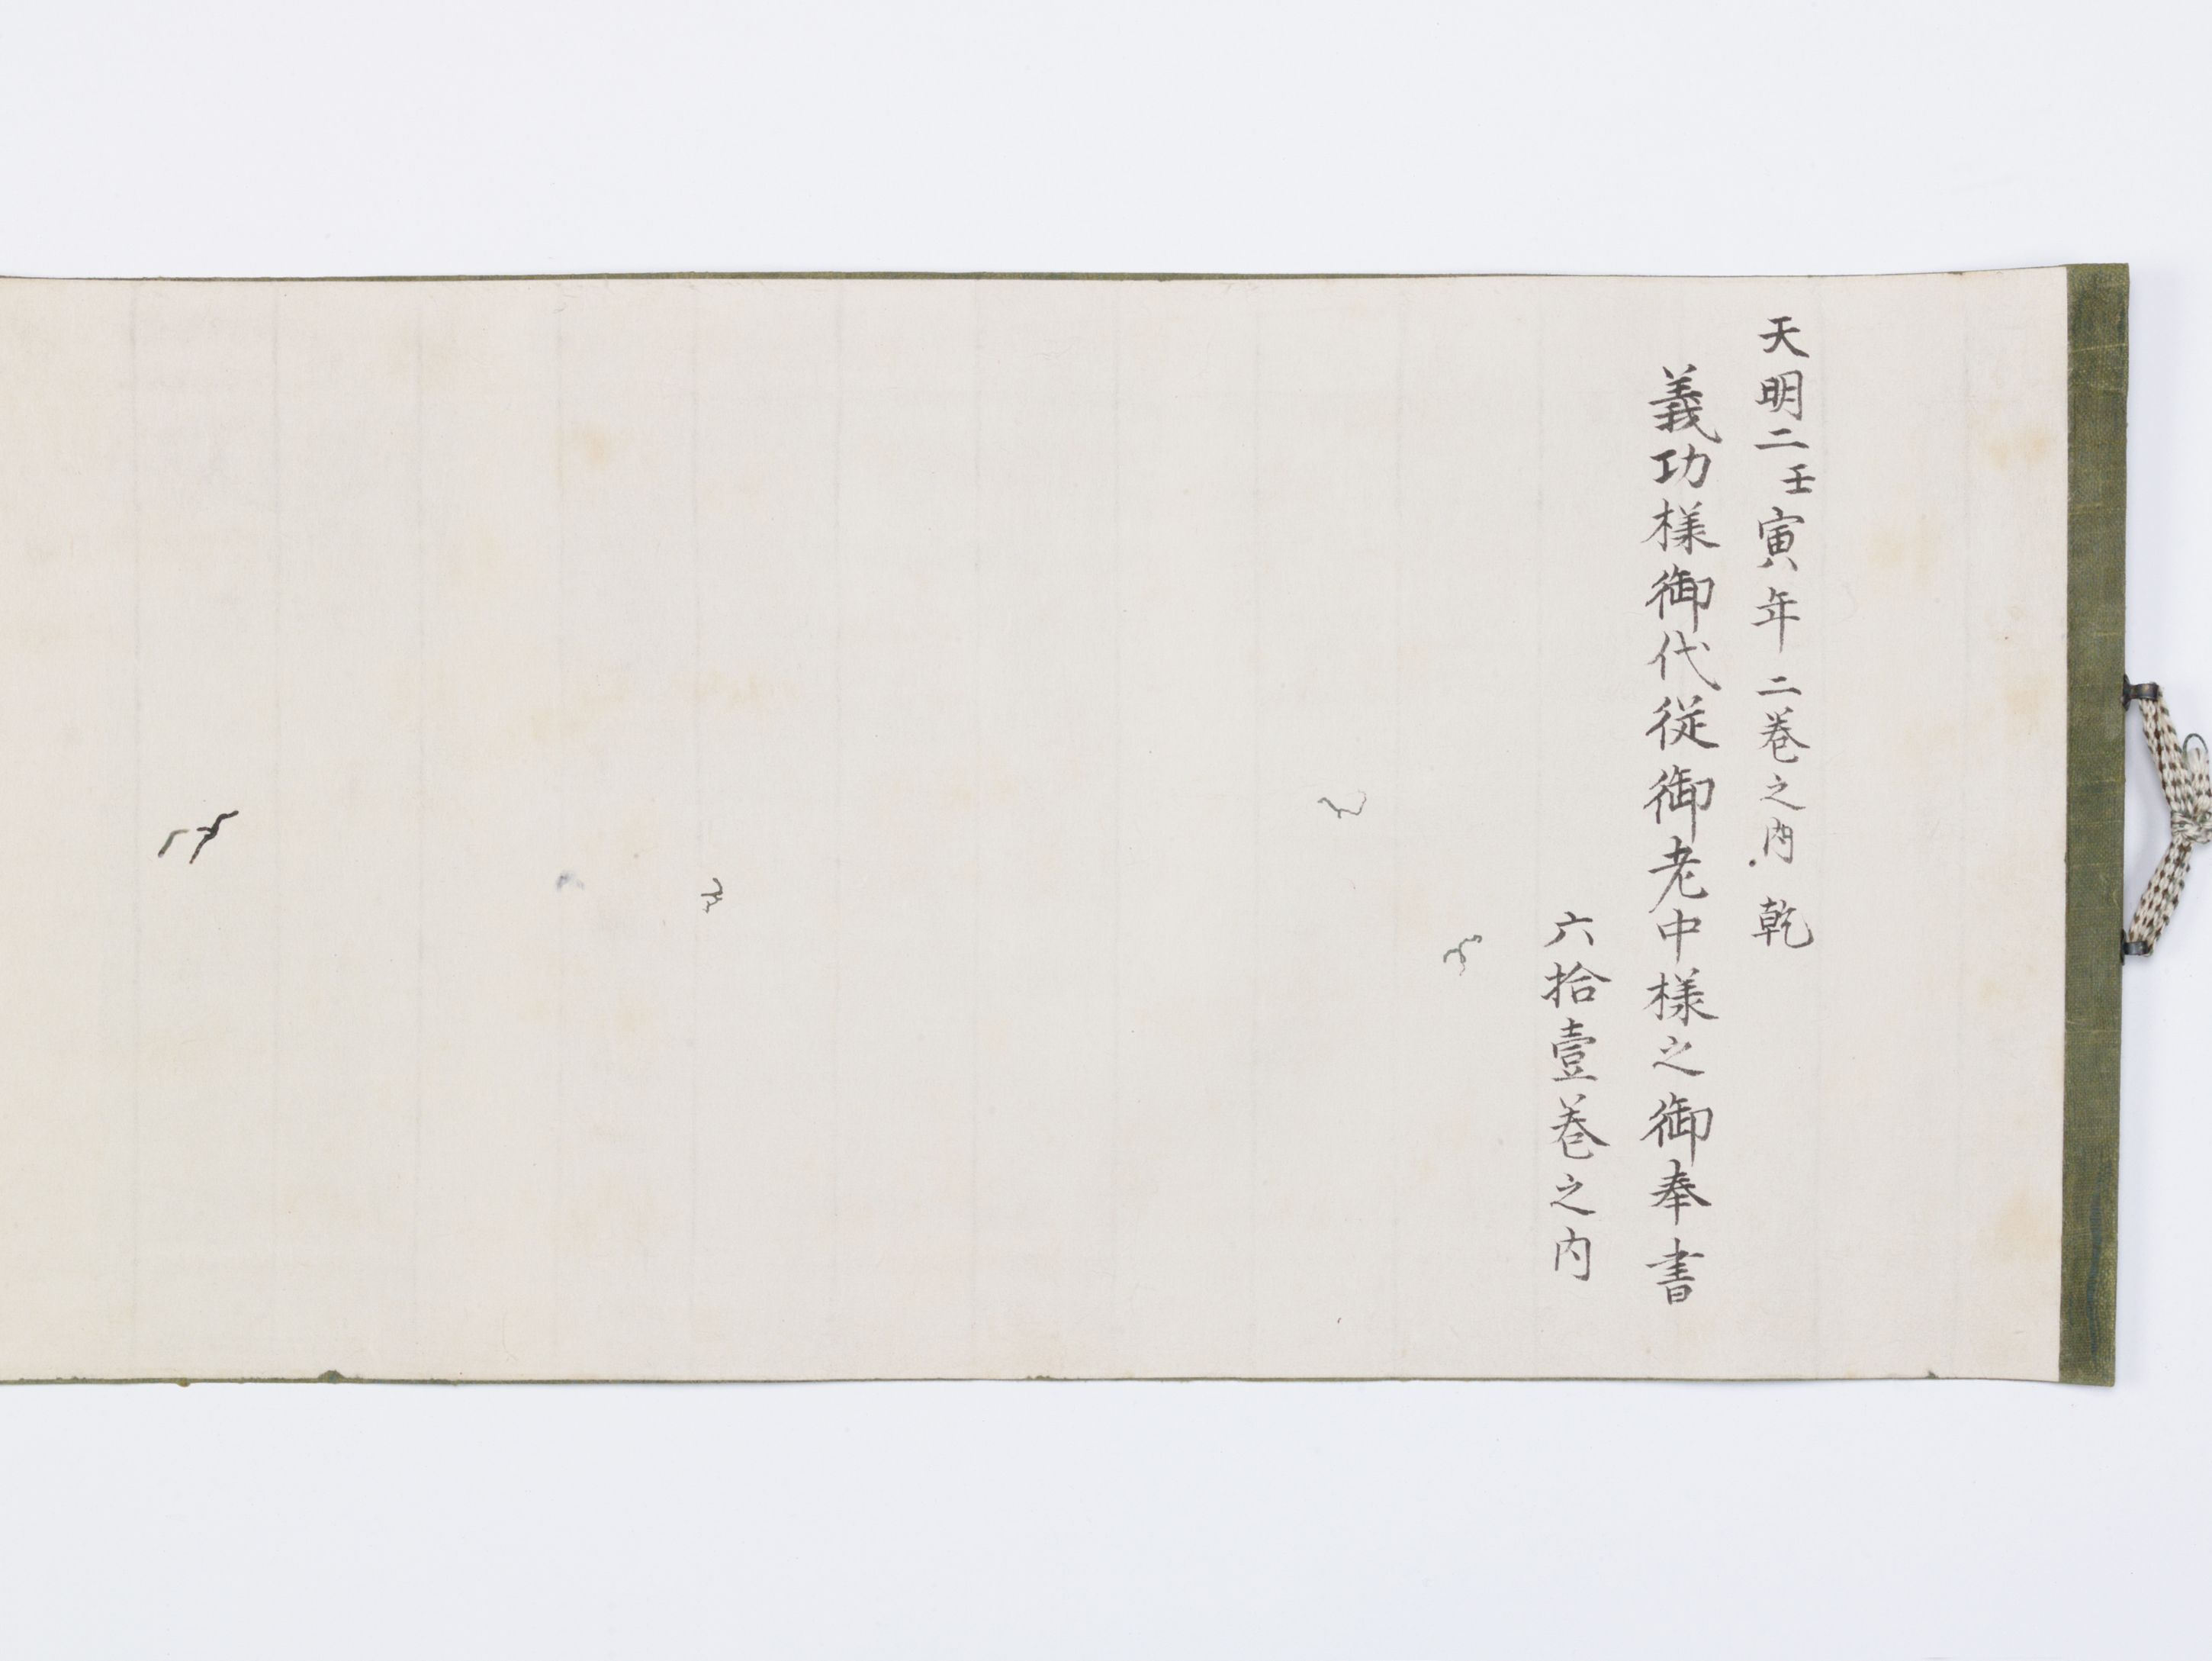 天明二壬寅年 二巻之内 乾
義功様御代従御老中様之御奉書
六拾壹巻之内